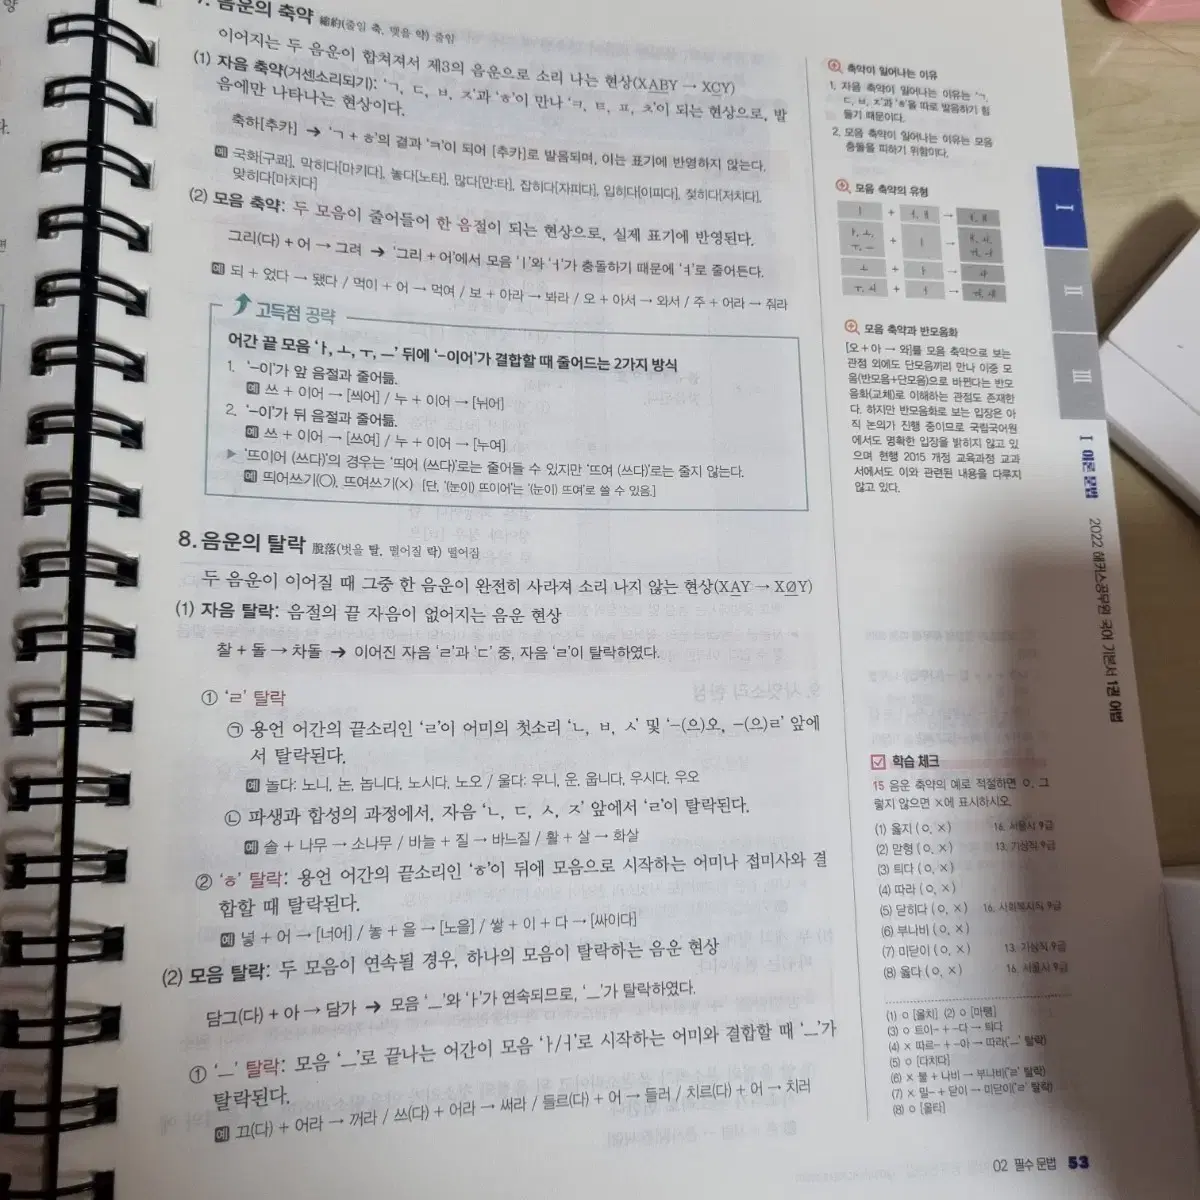 7. 음운의 축약 縮約(줄일 축, 맺을 약) 줄임
이어지는 두 음운이 합쳐져서 제3의 음운으로 소리 나는 현상(XABY → XCY)
(1) 자음 축약(거센소리되기): 'ㄱ, ㄷ, ㅂ, ㅈ'과 'ㅎ'이 만나 'ㅋ, ㅌ, ㅍ, ㅊ'이 되는 현상으로, 발
음에만 나타나는 현상이다.
축하[추카] → 'ㄱ + ㅎ'의 결과 'ㅋ'이 되어 [추카]로 발음되며, 이는 표기에 반영하지 않는다.
예 국화[구콰], 막히다[마키다], 놓다[노타], 많다[만:타], 잡히다[자피다], 입히다[이피다], 젖히다[저치다],
맞히다[마치다]
(2) 모음 축약: 두 모음이 줄어들어 한 음절이 되는 현상으로, 실제 표기에 반영된다.
그리(다) + 어 → 그려 → '그리 + 어'에서 모음 'ㅣ'와 'ㅓ'가 충돌하기 때문에 'ㅕ'로 줄어든다.
예 되 + 었다 → 됐다 / 먹이 + 어 → 먹여 / 보 + 아라 → 봐라 / 오 + 아서 → 와서 / 주 + 어라 → 줘라
고득점 공략
어간 끝 모음 'ㅏ, ㅗ, ㅜ, ㅡ' 뒤에 '-이어'가 결합할 때 줄어드는 2가지 방식
1. '-이'가 앞 음절과 줄어듦.
예 쓰 + 이어 → [씌어] / 누 + 이어 → [뉘어]
2. '-이'가 뒤 음절과 줄어듦.
예 쓰 + 이어 → [쓰여] / 누 + 이어 → [누여]
▶ '뜨이어 (쓰다)'의 경우는 '띄어 (쓰다)'로는 줄어들 수 있지만 '뜨여 (쓰다)'로는 줄지 않는다.
예 띄어쓰기(○), 뜨여쓰기(×) [단, '(눈이) 뜨이어'는 '(눈이) 뜨여'로 쓸 수 있음.]
8. 음운의 탈락 脫落(벗을 탈, 떨어질 락) 떨어짐
두 음운이 이어질 때 그중 한 음운이 완전히 사라져 소리 나지 않는 현상(XAY → XØY)
(1) 자음 탈락: 음절의 끝 자음이 없어지는 음운 현상
찰 + 돌 → 차돌 → 이어진 자음 'ㄹ'과 'ㄷ' 중, 자음 'ㄹ'이 탈락하였다.
① 'ㄹ' 탈락
㉠ 용언 어간의 끝소리인 'ㄹ'이 어미의 첫소리 'ㄴ, ㅂ, ㅅ' 및 '-(으)오, -(으)ㄹ' 앞에
서 탈락된다.
예 놀다: 노니, 논, 놉니다, 노시다, 노오 / 울다: 우니, 운, 웁니다, 우시다, 우오
㉡ 파생과 합성의 과정에서, 자음 'ㄴ, ㄷ, ㅅ, ㅈ' 앞에서 'ㄹ'이 탈락된다.
예 솔 + 나무 → 소나무 / 바늘 + 질 → 바느질 / 활 + 살 → 화살
② 'ㅎ' 탈락: 용언 어간의 끝소리인 'ㅎ'이 뒤에 모음으로 시작하는 어미나 접미사와 결
합할 때 탈락된다.
예 넣 + 어 → [너어] / 놓 + 을 → [노을] / 쌓 + 이 + 다 → [싸이다]
(2) 모음 탈락: 두 모음이 연속될 경우, 하나의 모음이 탈락하는 음운 현상
담그(다) + 아 → 담가 → 모음 'ㅡ'와 'ㅏ'가 연속되므로, 'ㅡ'가 탈락하였다.
① 'ㅡ' 탈락: 모음 'ㅡ'로 끝나는 어간이 모음 'ㅏ/ㅓ'로 시작하는 어미와 결합할 때 'ㅡ'가
탈락된다.
예 끄(다) + 어라 → 꺼라 / 쓰(다) + 어라 → 써라 / 들르(다) + 어 → 들러 / 치르(다) + 어 → 치러
축약이 일어나는 이유
1. 자음 축약이 일어나는 이유는 'ㄱ,
ㄷ, ㅂ, ㅈ'과 'ㅎ'을 따로 발음하기 힘
들기 때문이다.
2. 모음 축약이 일어나는 이유는 모음
충돌을 피하기 위함이다.
모음 축약의 유형
모음 축약과 반모음화
[오 + 아 → 와]를 모음 축약으로 보는
관점 외에도 단모음끼리 만나 이중 모
음(반모음+단모음)으로 바뀐다는 반모
음화(교체)로 이해하는 관점도 존재한
다. 하지만 반모음화로 보는 입장은 아
직 논의가 진행 중이므로 국립국어원
에서도 명확한 입장을 밝히지 않고 있
으며 현행 2015 개정 교육과정 교과
서에서도 이와 관련된 내용을 다루지
않고 있다.
학습 체크
15 음운 축약의 예로 적절하면 ○, 그
렇지 않으면 ×에 표시하시오.
(1) 옳지 (○, ×) 16. 서울시 9급
(2) 맏형 (○, ×) 13. 기상직 9급
(3) 틔다 (○, ×)
(4) 따라 (○, ×)
(5) 닫히다 (○, ×) 16. 사회복지직 9급
(6) 부나비 (○, ×)
(7) 미닫이 (○, ×) 13. 기상직 9급
(8) 옳다 (○, ×) 16. 서울시 9급
(1) ○ [올치] (2) ○ [마텽]
(3) ○ 트이- + -다 → 틔다
(4) × 따르- + -아 → 따라('ㅡ' 탈락)
(5) ○ [다치다]
(6) × 불 + 나비 → 부나비('ㄹ' 탈락)
(7) × 밀- + 닫이 → 미닫이('ㄹ' 탈락)
(8) ○ [올타]
Ⅰ
Ⅱ
Ⅲ
Ⅰ 이론 문법
2022 해커스공무원 국어 기본서 1권 어법
02 필수 문법 53